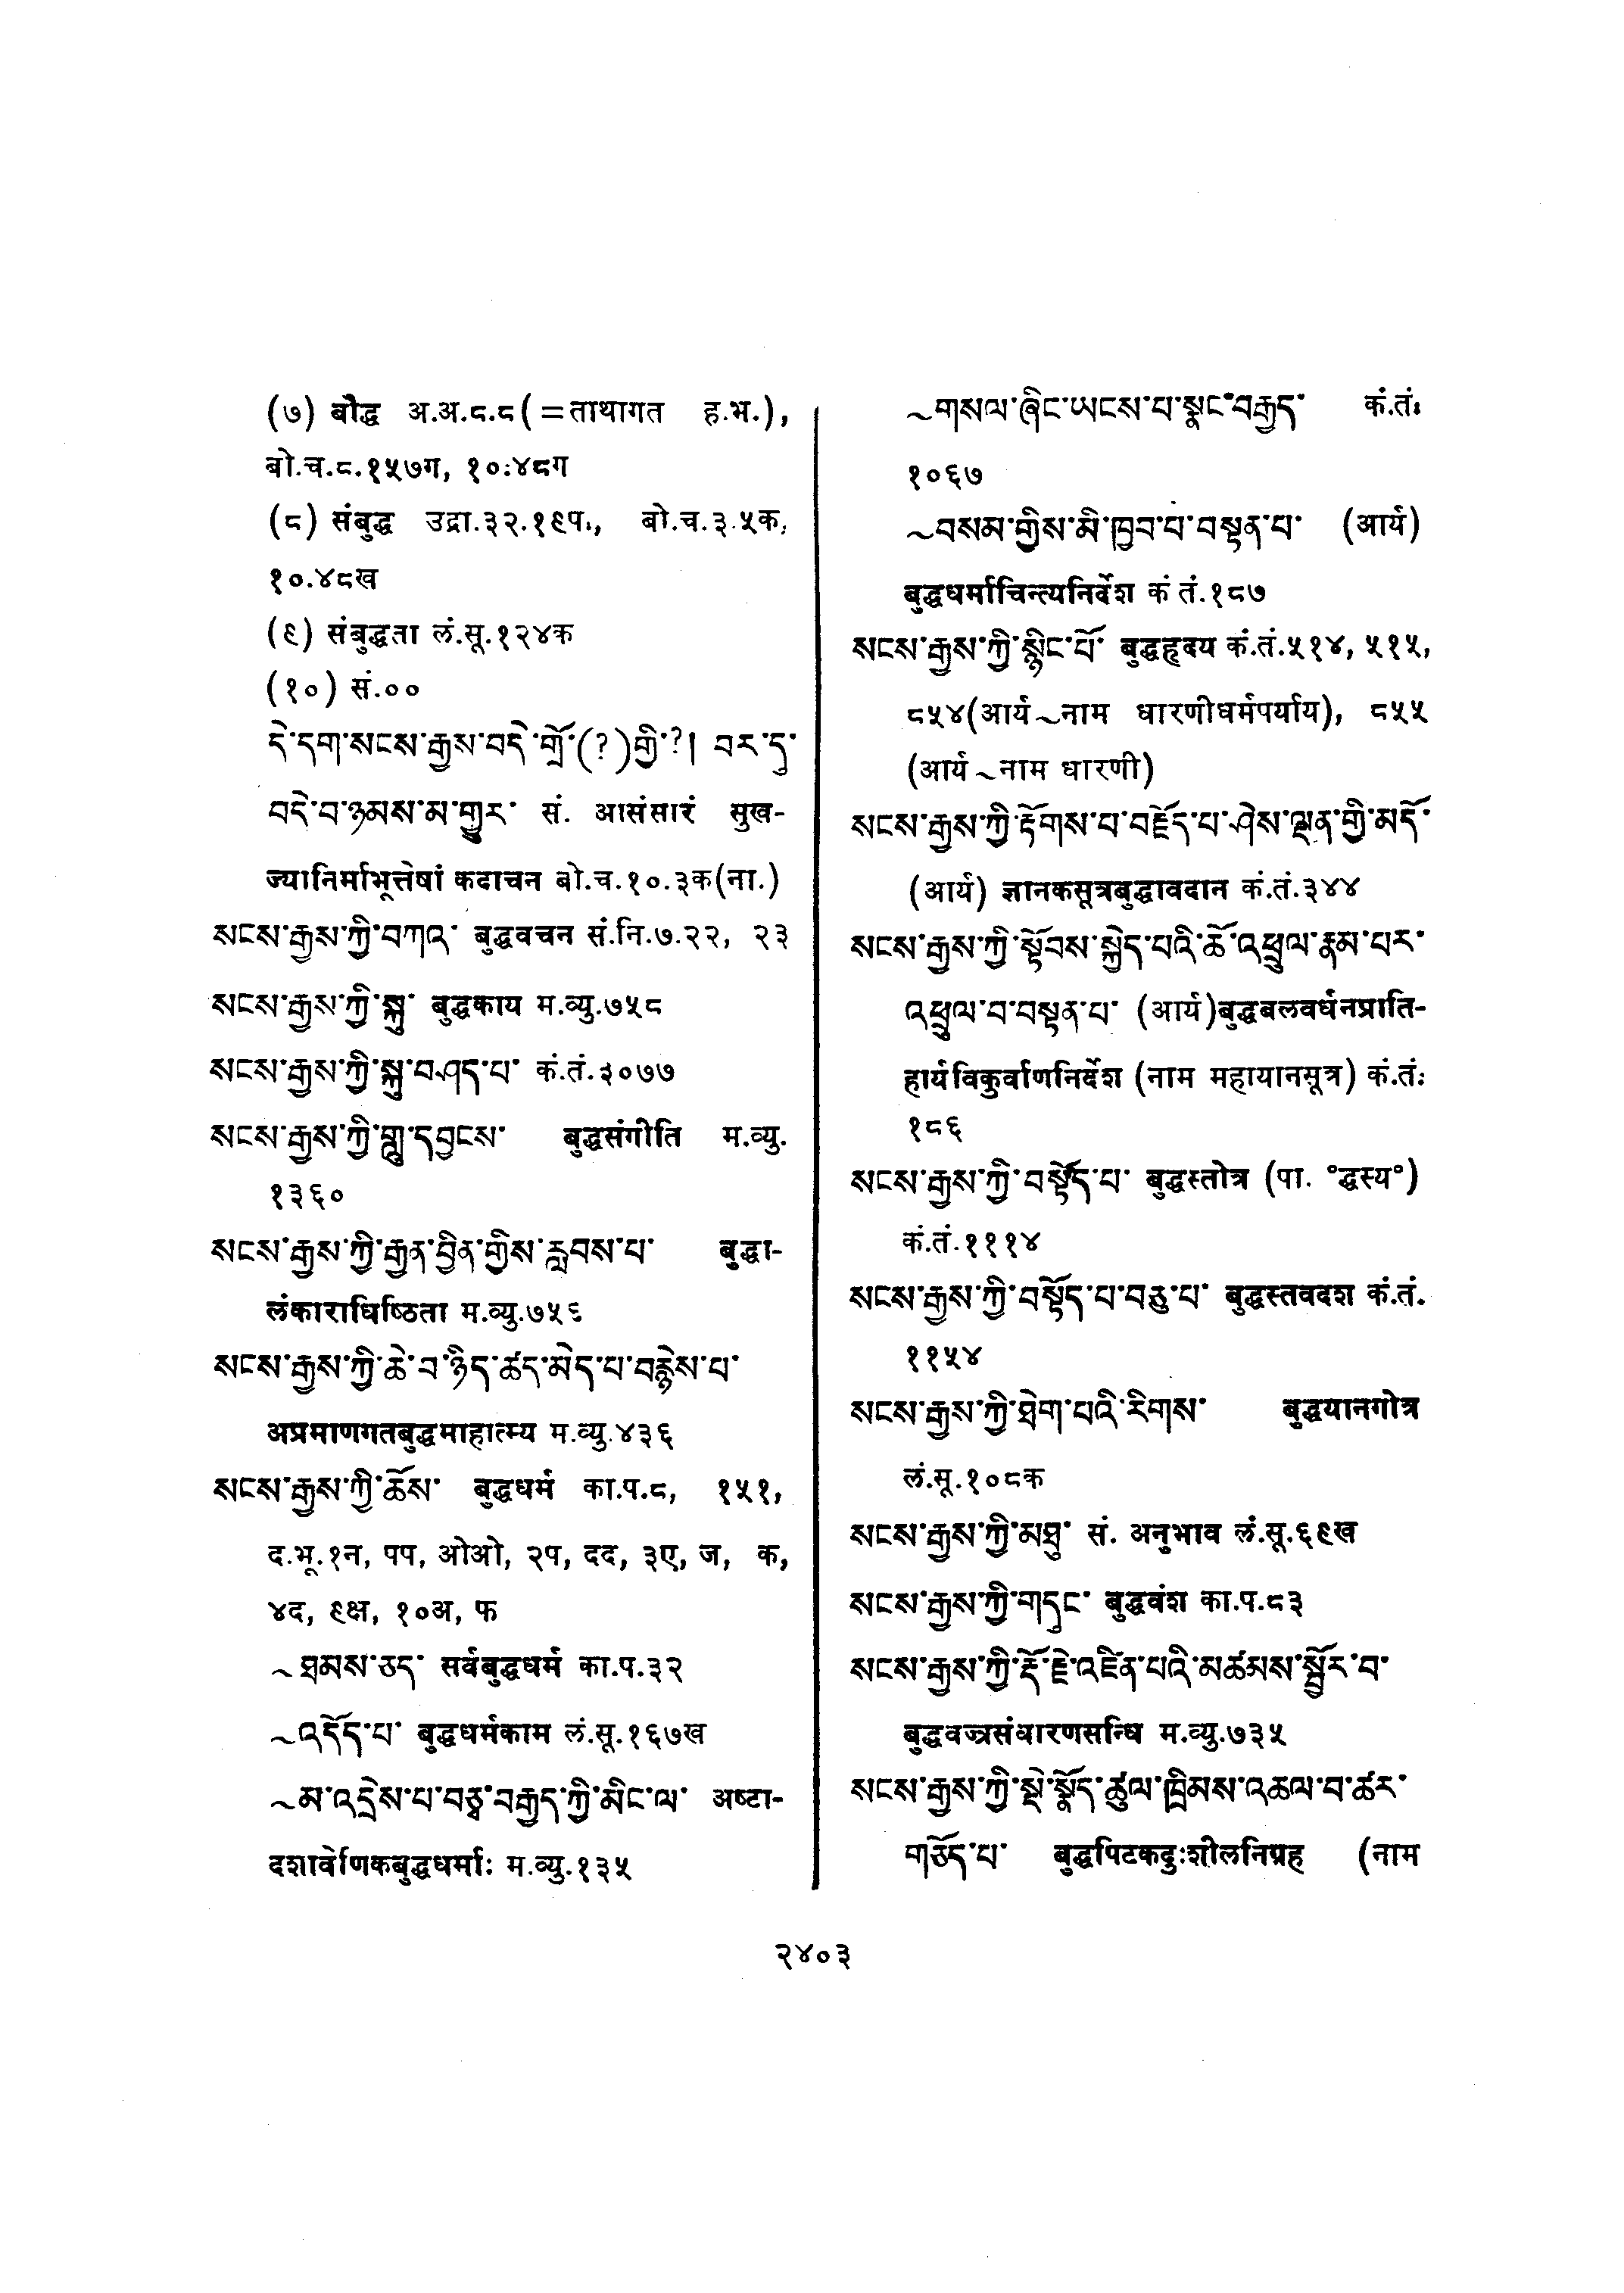 (७) बौद्ध अ.अ.८.८(=ताथागत ह.भ.),
बो.च.८.१५७ग, १०.४८ग
(८) संबुद्ध उद्रा.३२.१९प., बो.च.३.५क,
१०.४८ख
(९) संबुद्धता लं.सू.१२४क
(१०) सं.००
དེ་དག་སངས་རྒྱས་བདེ་གྲོ་(?)གྱི་?། བར་དུ་
བདེ་བ་ཉམས་མ་གྱུར་ सं. आसंसारं सुख-
ज्यानिर्माभूत्तेषां कदाचन बो.च.१०.३क(ना.)
སངས་རྒྱས་ཀྱི་བཀའ་ बुद्धवचन सं.नि.७.२२, २३
སངས་རྒྱས་ཀྱི་སྐུ་ बुद्धकाय म.व्यु.७५८
སངས་རྒྱས་ཀྱི་སྐུ་བཤད་པ་ कं.तं.३०७७
སངས་རྒྱས་ཀྱི་གླུ་དབྱངས་ बुद्धसंगीति म.व्यु.
१३६०
སངས་རྒྱས་ཀྱི་རྒྱན་བྱིན་གྱིས་རླབས་པ་ बुद्धा-
लंकाराधिष्ठिता म.व्यु.७५९
སངས་རྒྱས་ཀྱི་ཆེ་བ་ཉིད་ཚད་མེད་པ་བརྙེས་པ་
अप्रमाणगतबुद्धमाहात्म्य म.व्यु.४३६
སངས་རྒྱས་ཀྱི་ཆོས་ बुद्धधर्म का.प.८, १५१,
द.भू.१न, पप, ओओ, २प, दद, ३ए, ज, क,
४द, ९क्ष, १०अ, फ
~ཐམས་ཅད་ सर्वबुद्धधर्म का.प.३२
~འདོད་པ་ बुद्धधर्मकाम लं.सू.१६७ख
~མ་འདྲེས་པ་བཅྭ་བརྒྱད་ཀྱི་མིང་ལ་ अष्टा-
दशावेणिकबुद्धधर्माः म.व्यु.१३५
~གསལ་ཞིང་ཡངས་པ་སྣང་བརྒྱད་ कं.तं.
१०६७
~བསམ་གྱིས་མི་ཁྱབ་པ་བསྟན་པ་ (आर्य)
बुद्धधर्माचिन्त्यनिर्देश कं तं.१८७
སངས་རྒྱས་ཀྱི་སྙིང་པོ་ बुद्धहृदय कं.तं.५१४, ५१५,
८५४(आर्य~नाम धारणीधर्मपर्याय), ८५५
(आर्य~नाम धारणी)
སངས་རྒྱས་ཀྱི་རྟོགས་པ་བརྗོད་པ་ཤེས་ལྡན་གྱི་མདོ་
(आर्य) ज्ञानकसूत्रबुद्धावदान कं.तं.३४४
སངས་རྒྱས་ཀྱི་སྟོབས་སྐྱེད་པའི་ཆོ་འཕྲུལ་རྣམ་པར་
འཕྲུལ་བ་བསྟན་པ་ (आर्य)बुद्धबलवर्धनप्राति-
हार्यविकुर्वाणनिर्देश (नाम महायानसूत्र) कं.तं.
१८६
སངས་རྒྱས་ཀྱི་བསྟོད་པ་ बुद्धस्तोत्र (पा. °द्धस्य°)
कं.तं.१११४
སངས་རྒྱས་ཀྱི་བསྟོད་པ་བཅུ་པ་ बुद्धस्तवदश कं.तं.
११५४
སངས་རྒྱས་ཀྱི་ཐེག་པའི་རིགས་ बुद्धयानगोत्र
लं.सू.१०८क
སངས་རྒྱས་ཀྱི་མཐུ་ सं. अनुभाव लं.सू.६९ख
སངས་རྒྱས་ཀྱི་གདུང་ बुद्धवंश का.प.८३
སངས་རྒྱས་ཀྱི་རྡོ་རྗེ་འཛིན་པའི་མཚམས་སྦྱོར་བ་
बुद्धवज्रसंधारणसन्धि म.व्यु.७३५
སངས་རྒྱས་ཀྱི་སྡེ་སྣོད་ཚུལ་ཁྲིམས་འཆལ་བ་ཚར་
གཅོད་པ་ बुद्धपिटकदुःशीलनिग्रह (नाम
२४०३